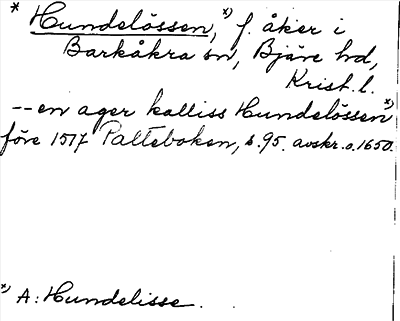 * Hundelössen, *) f. åker i
Barkåkra sn, Bjäre hd,
Krist. l.
-- en ager kalliss Hundelössen *)
före 1517 Palteboken, s. 95. avskr. o. 1650.
*) A: Hundelisse.